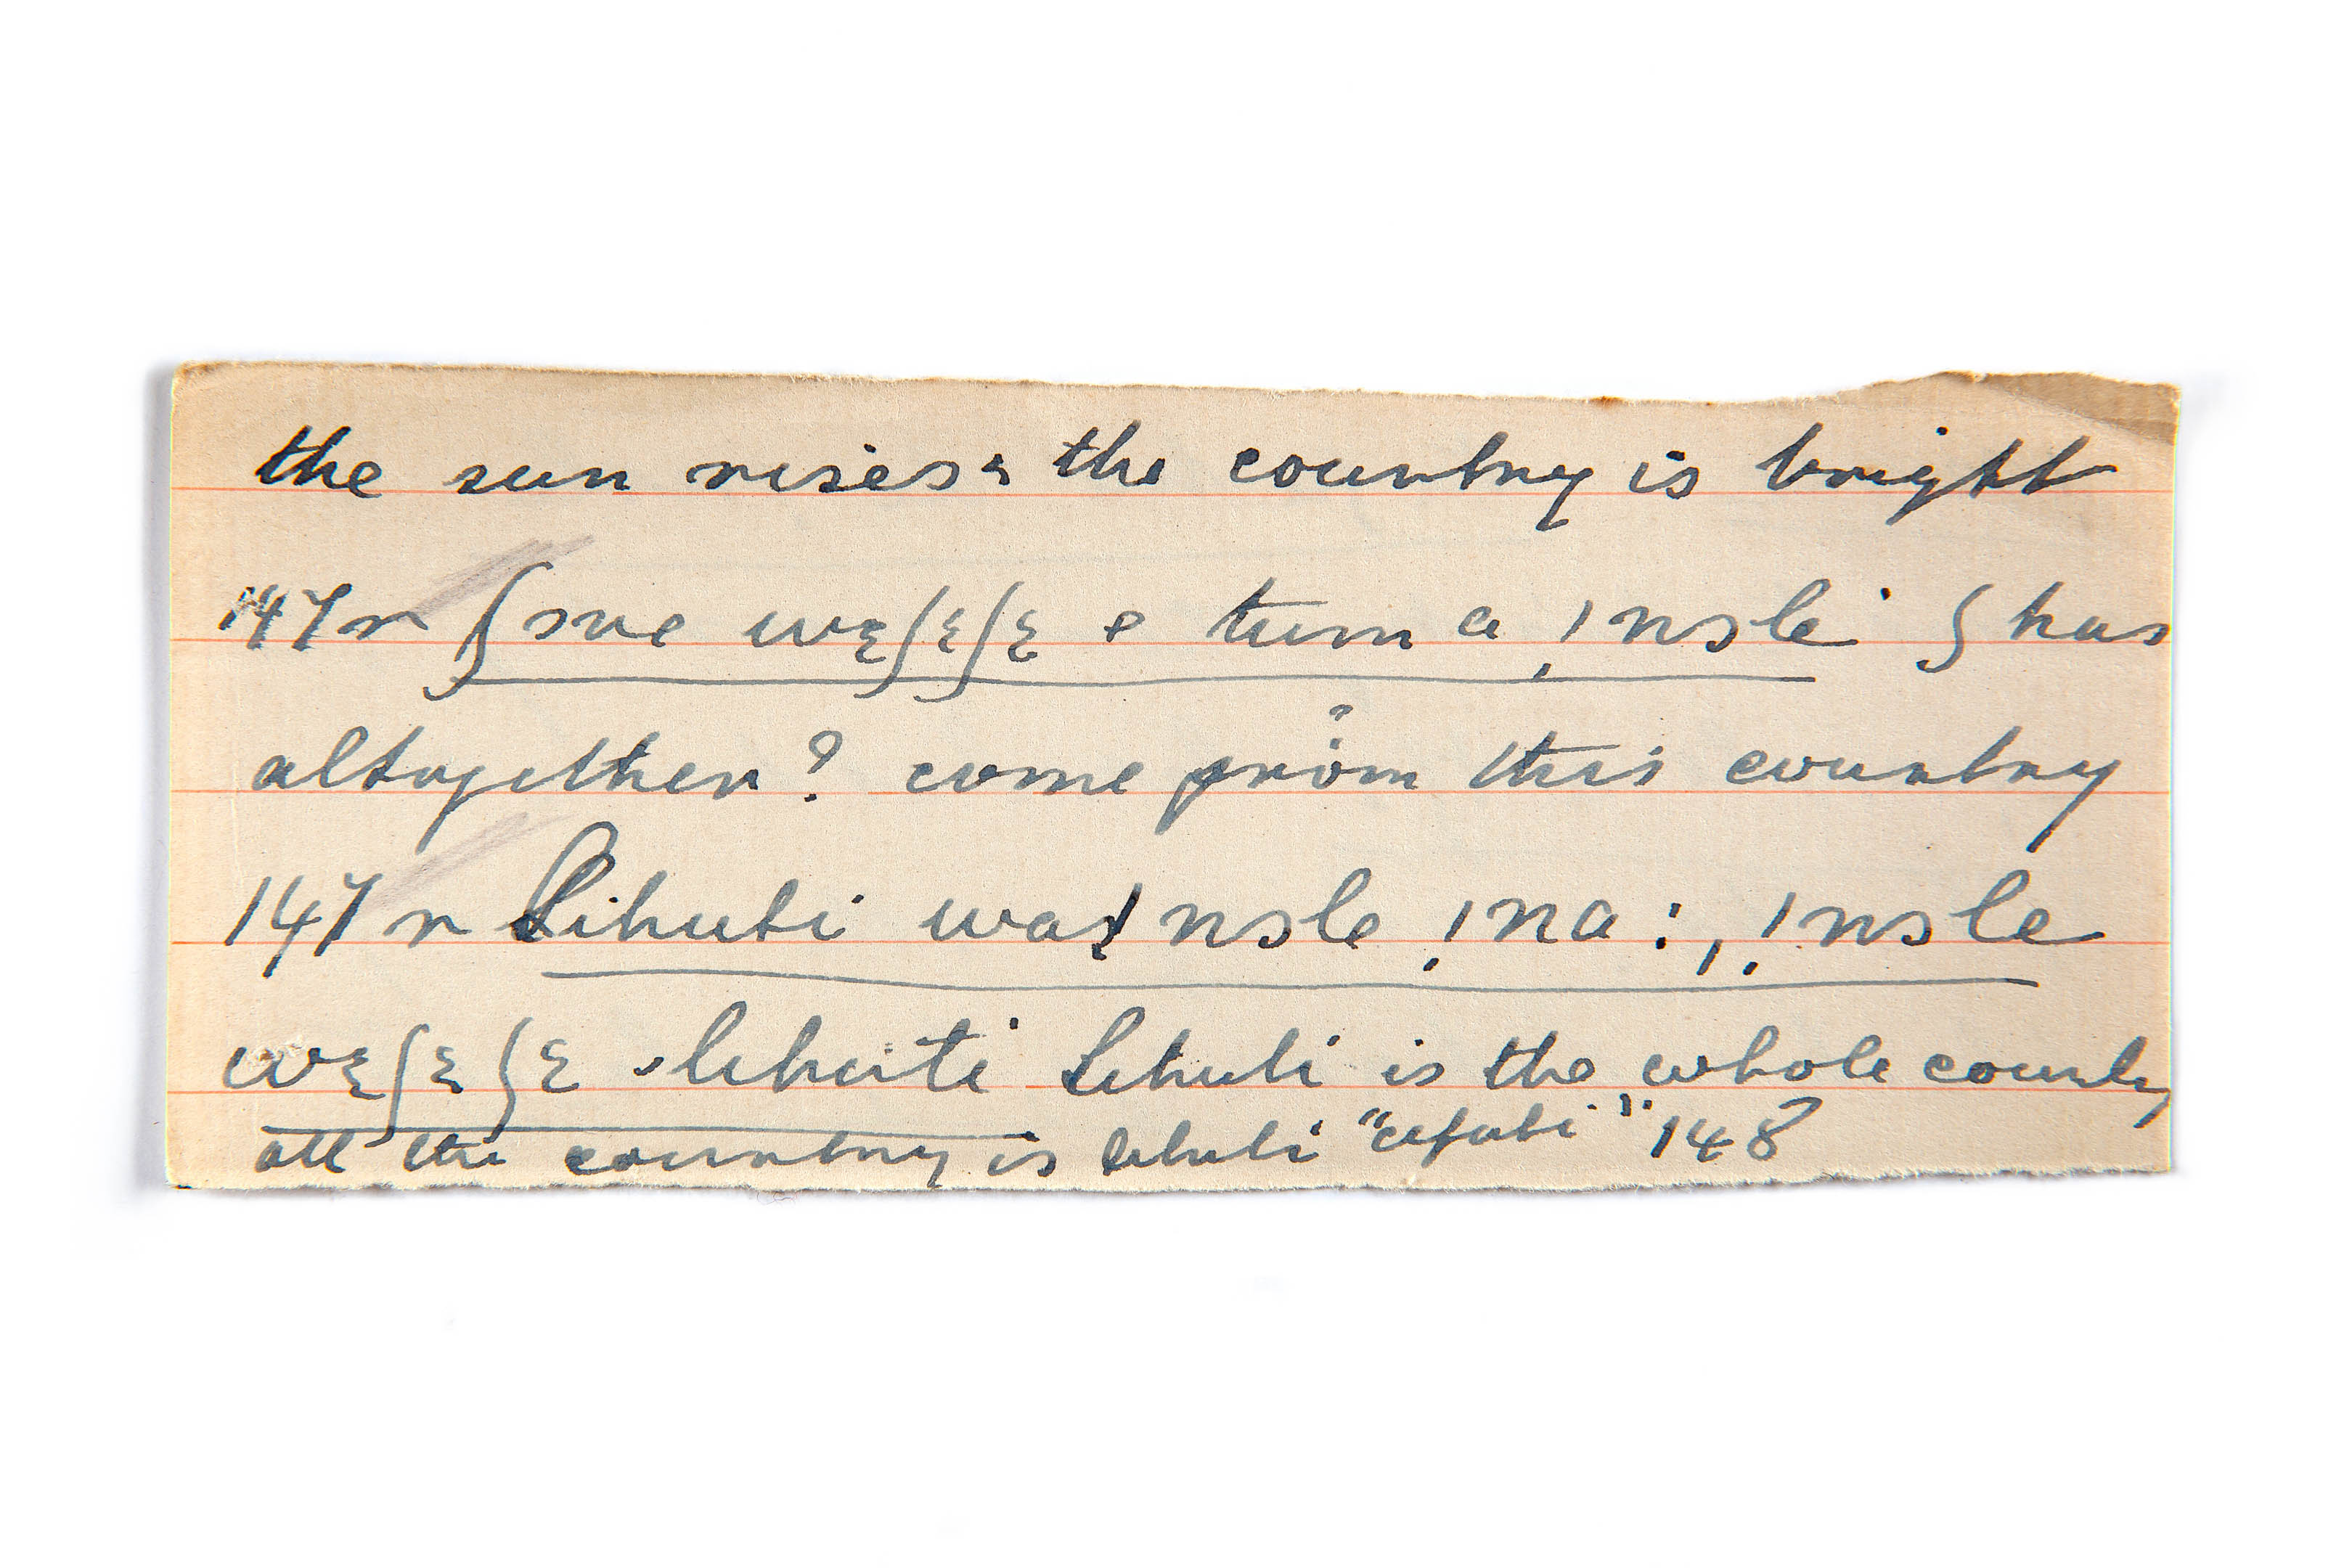 the sun rises: the country is bright
147 r ʃɔre wɛʃɛʃɛ e tum a ˌǀnɔle ʃ has
altogether? come from this country
147 r Lihuti waǀnɔle ˌǀna:, ˌǀnɔle
wɛʃɛʃɛ lehuti Lehuti is the whole country
all the country is lehuti 148